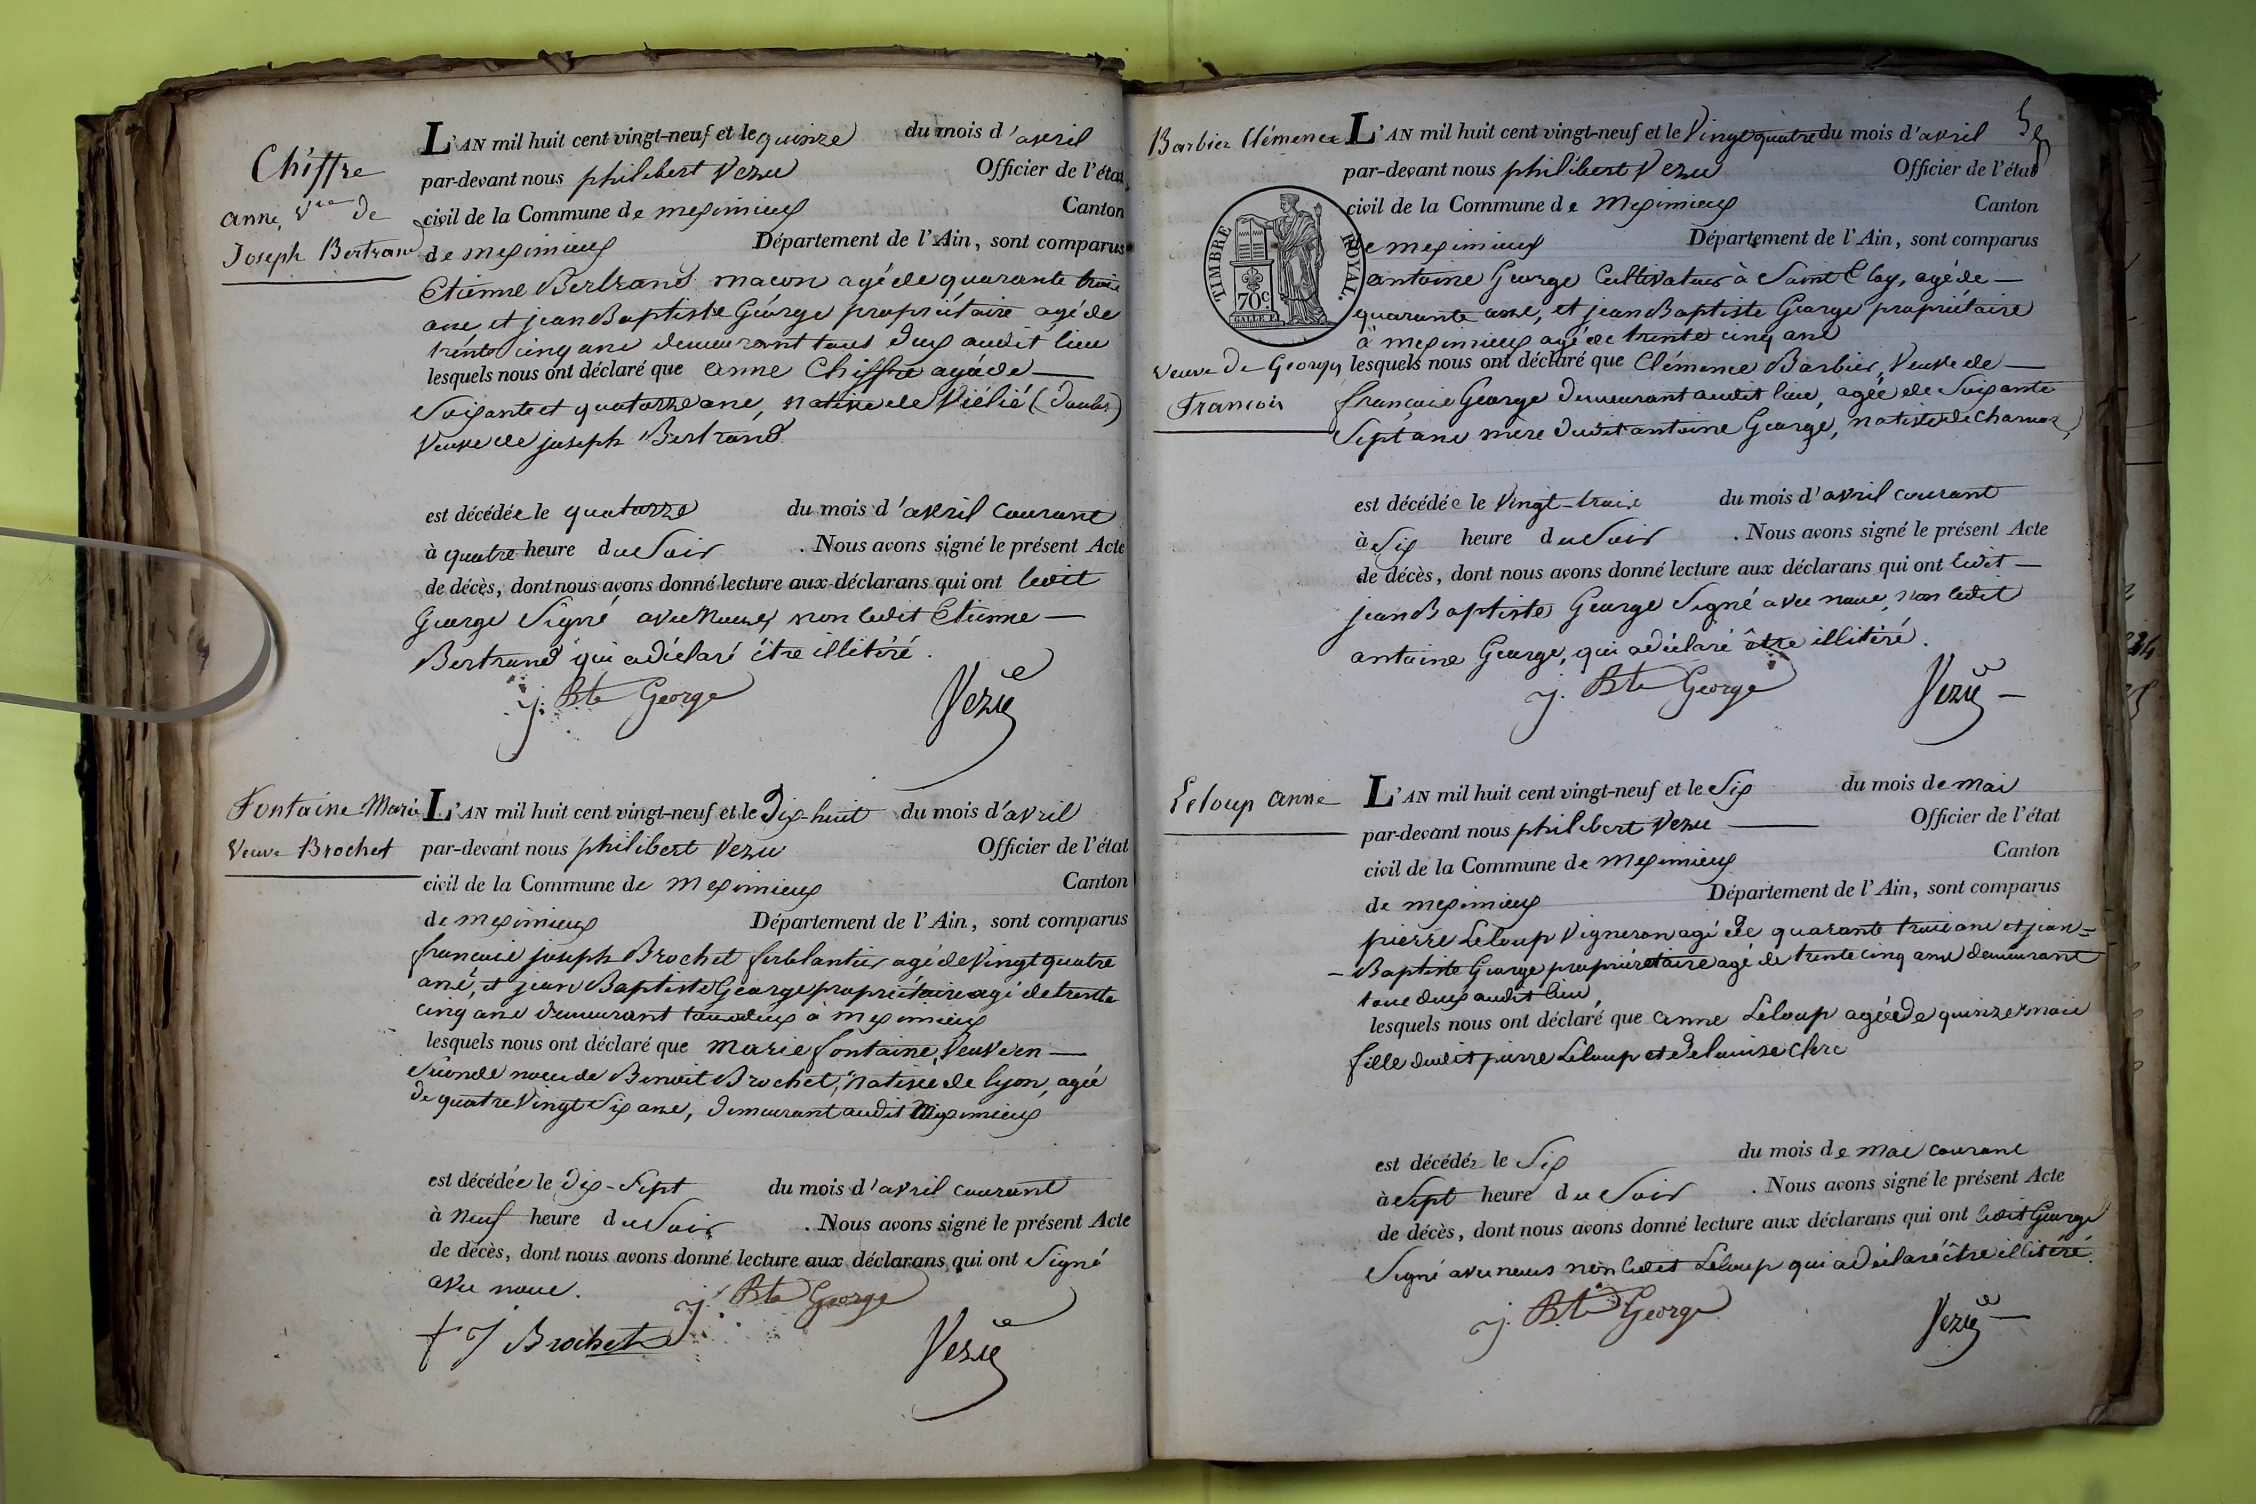 Chiffre
anne, Vve de
Joseph Bertrand
L'AN mil huit cent vingt-neuf et le quinze du mois d'avril
par-devant nous philibert Vezu Officier de l'état
civil de la Commune de meximieux Canton
de meximieux Département de l'Ain, sont comparus
Etienne Bertrand macon agé de quarante trois
ans, et jean Baptiste George propriétaire agé de
trente cinq ans demeurant tous deux audit lieu
lesquels nous ont déclaré que anne Chiffre agée de
Soixante et quatorze ans, native de (doubs)
Veuve de joseph Bertrand
est décédée le quatorze du mois d'avril courant
à quatre heure du Soir . Nous avons signé le présent Acte
de décès, dont nous avons donné lecture aux déclarans qui ont ledit
George Signé avec nous, non ledit Etienne
Bertrand qui a déclaré être illitéré.
J. Bte George Vezu
Fontaine Marie
Veuve Brochet
L'AN mil huit cent vingt-neuf et le Dix-huit du mois d'avril
par-devant nous philibert Vezu Officier de l'état
civil de la Commune de meximieux Canton
de meximieux Département de l'Ain, sont comparus
francois joseph Brochet ferblantier agé de Vingt quatre
ans, et jean Baptiste George propriétaire agé de trente
cinq ans demeurant tous deux à meximieux
lesquels nous ont déclaré que marie fontaine, Veuve en
Seconde noce de Benoit Brochet, native de lyon, agée
de quatre Vingt Six ans, demeurant audit Meximieux
est décédée le Dix-Sept du mois d'avril courant
à Neuf heure du Soir . Nous avons signé le présent Acte
de décès, dont nous avons donné lecture aux déclarans qui ont Signé
avec nous.
J. Bte George
f J Brochet Vezu
5
Barbier Clémence
TIMBRE ROYAL.
70 c.
veuve de George
Francois
L'AN mil huit cent vingt-neuf et le Vingt quatre du mois d'avril
par-devant nous philibert Vezu Officier de l'état
civil de la Commune de Meximieux Canton
de meximieux Département de l'Ain, sont comparus
antoine George Cultivateur à Saint Eloy, agé de
quarante ans, et jean Baptiste George propriétaire
à meximieux agé de trente cinq ans
lesquels nous ont déclaré que Clémence Barbier, Veuve de
françois George demeurant audit lieu, agée de Soixante
Sept ans mère dudit antoine George, native de charnoz,
est décédée le Vingt-trois du mois d'avril courant
à Six heure du Soir . Nous avons signé le présent Acte
de décès, dont nous avons donné lecture aux déclarans qui ont ledit
jean Baptiste George Signé avec nous, non ledit
antoine George, qui a déclaré être illitéré.
J. Bte George Vezu
Leloup anne
L'AN mil huit cent vingt-neuf et le Six du mois de mai
par-devant nous philibert Vezu Officier de l'état
civil de la Commune de Meximieux Canton
de meximieux Département de l'Ain, sont comparus
pierre Leloup Vigneron agé de quarante trois ans et jean-
-Baptiste George propriéretaire agé de trente cinq ans demeurant
tous deux audit lieu
lesquels nous ont déclaré que anne Leloup agée de quinze mois
fille dudit pierre Leloup et de louise Clerc
est décédée le Six du mois de mai courant
à Sept heure du Soir . Nous avons signé le présent Acte
de décès, dont nous avons donné lecture aux déclarans qui ont ledit George
Signé avec nous non ledit Leloup qui a déclaré être illitéré.
J. Bte George Vezu